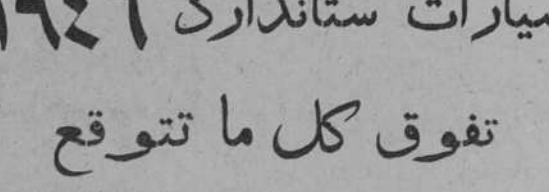 سيارات ستاندارد ١٩٤٦
تفوق كل ما تتوقع